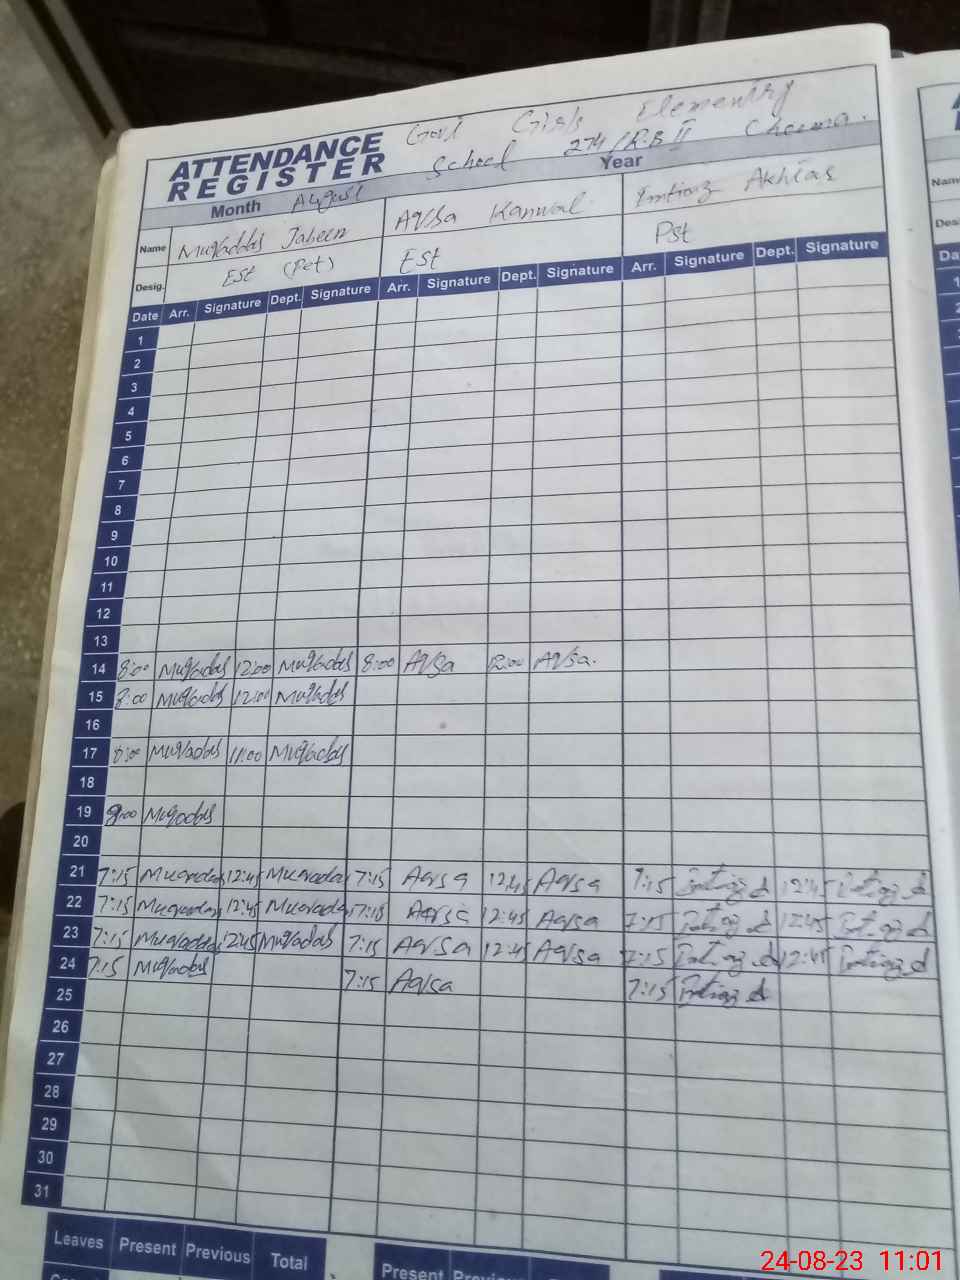 ATTENDANCE REGISTER Govt Girls Elementry
School 274/R.B II Cheema.
Month August Year
Name Muqaddas Jabeen Aqsa Kanwal Imtiaz Akhtar
Desig. Est (Pet) Est Pst
Date Arr. Signature Dept. Signature Arr. Signature Dept. Signature Arr. Signature Dept. Signature
1
2
3
4
5
6
7
8
9
10
11
12
13
14 8:00 Muqadas 12:00 Muqadas 8:00 Aqsa 12:00 Aqsa.
15 8:00 Muqadas 12:00 Muqadas
16
17 8:00 Muqadas 11:00 Muqadas
18
19 8:00 Muqadas
20
21 7:15 Muqadas 12:45 Muqadas 7:15 Aqsa 12:45 Aqsa 7:15 Imtiaz A 12:45 Imtiaz A
22 7:15 Muqadas 12:45 Muqadas 7:15 Aqsa 12:45 Aqsa 7:15 Imtiaz A 12:45 Imtiaz A
23 7:15 Muqaddas 12:45 Muqadas 7:15 Aqsa 12:45 Aqsa 7:15 Imtiaz A 12:45 Imtiaz A
24 7:15 Muqadas 7:15 Aqsa 7:15 Imtiaz A
25
26
27
28
29
30
31
Leaves Present Previous Total Present
24-08-23 11:01